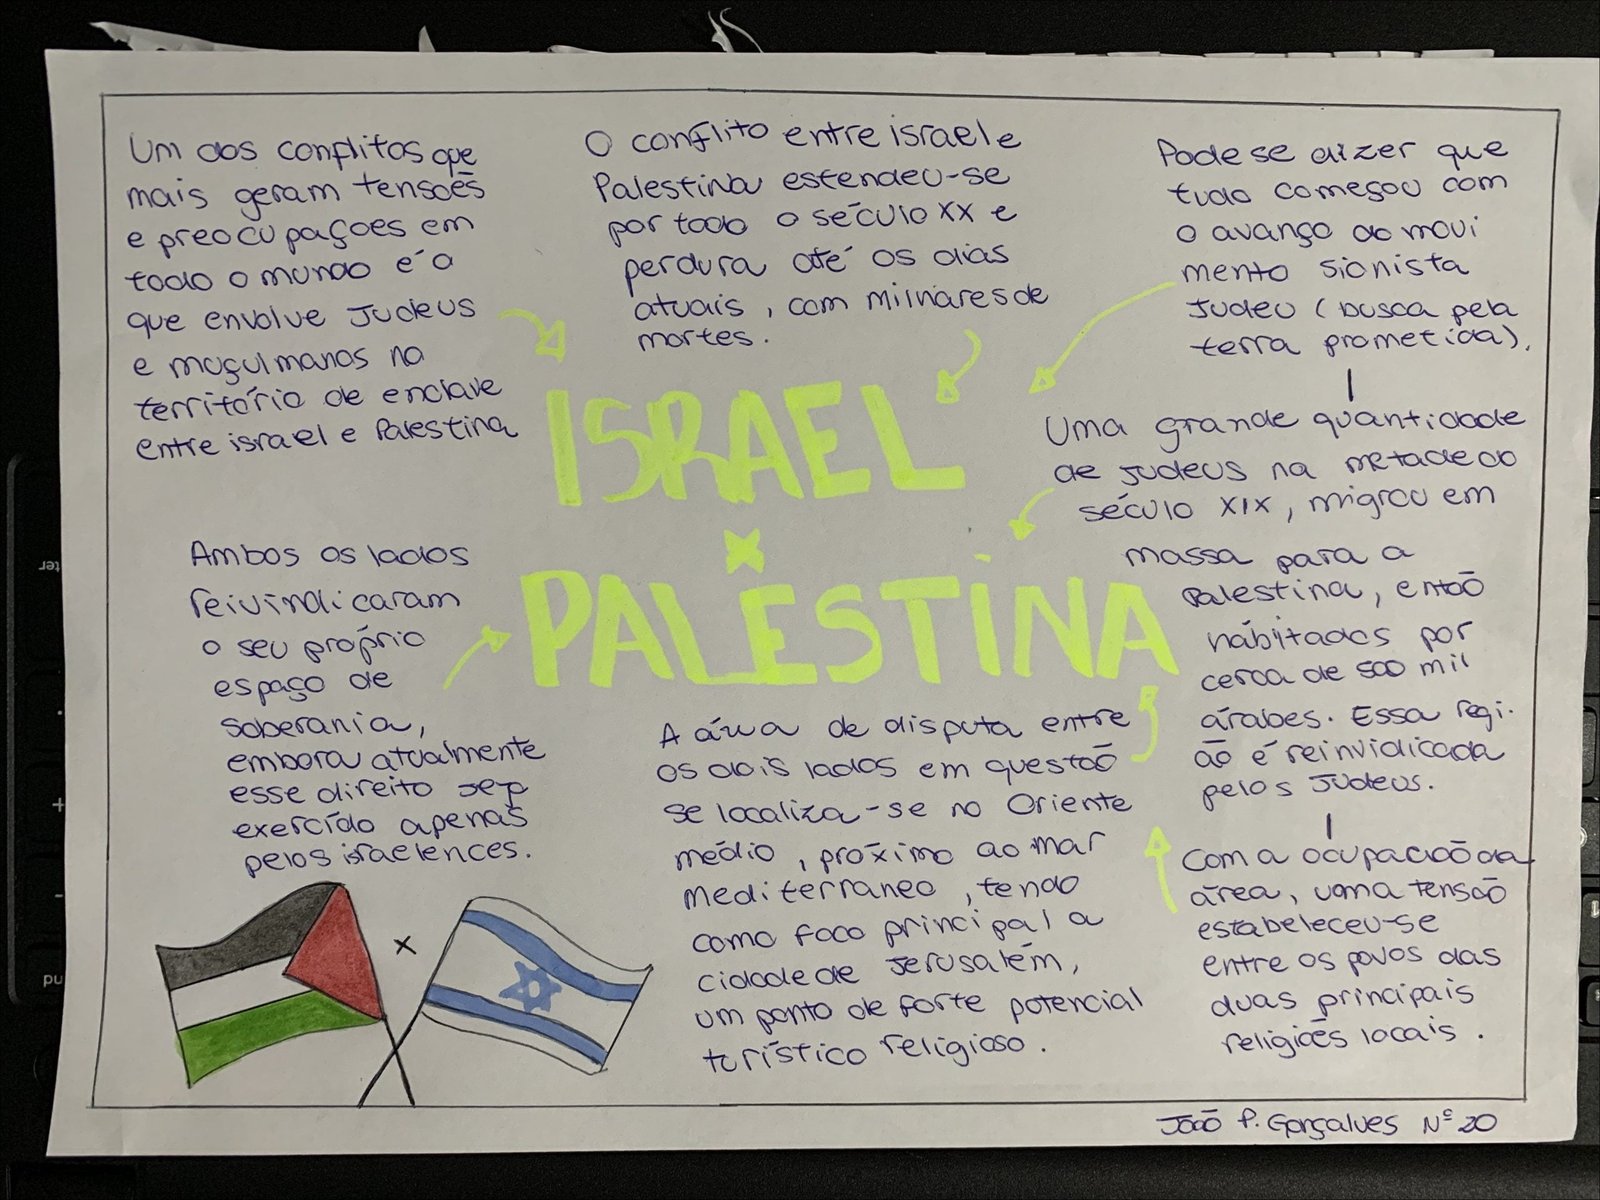 Um dos conflitos que
mais geram tensoês
e preocupaçoes em
todo o mundo é o
que envolve Judeus
e muçulmanos no
território de enclave
entre israel e Palestina
O conflito entre israel e
Palestina estendeu-se
por todo o século XX e
perdura até os dias
atuais, com milhares de
mortes.
Pode se dizer que
tudo começou com
o avanço do movi
mento sionista
Judeu (busca pela
terra prometida).
Uma grande quantidade
de judeus na metade do
século XIX, migrou em
massa para a
Palestina, então
hábitados por
cerca de 500 mil
árabes. Essa regi-
ão é reinvidicada
pelos Judeus.
Com a ocupacão da
área, uma tensão
estabeleceu-se
entre os povos das
duas principais
religiões locais.
ISRAEL
x
PALÊSTINA
Ambos os lados
reivindicaram
o seu próprio
espaço de
soberania,
embora atualmente
esse direito seja
exercído apenas
pelos israelences.
A área de disputa entre
os dois lados em questão
se localiza-se no Oriente
médio, próximo ao mar
mediterraneo, tendo
como foco principal a
cidade de Jerusalém,
um ponto de forte potencial
turístico religioso.
x
João P. Gonçalves Nº 20